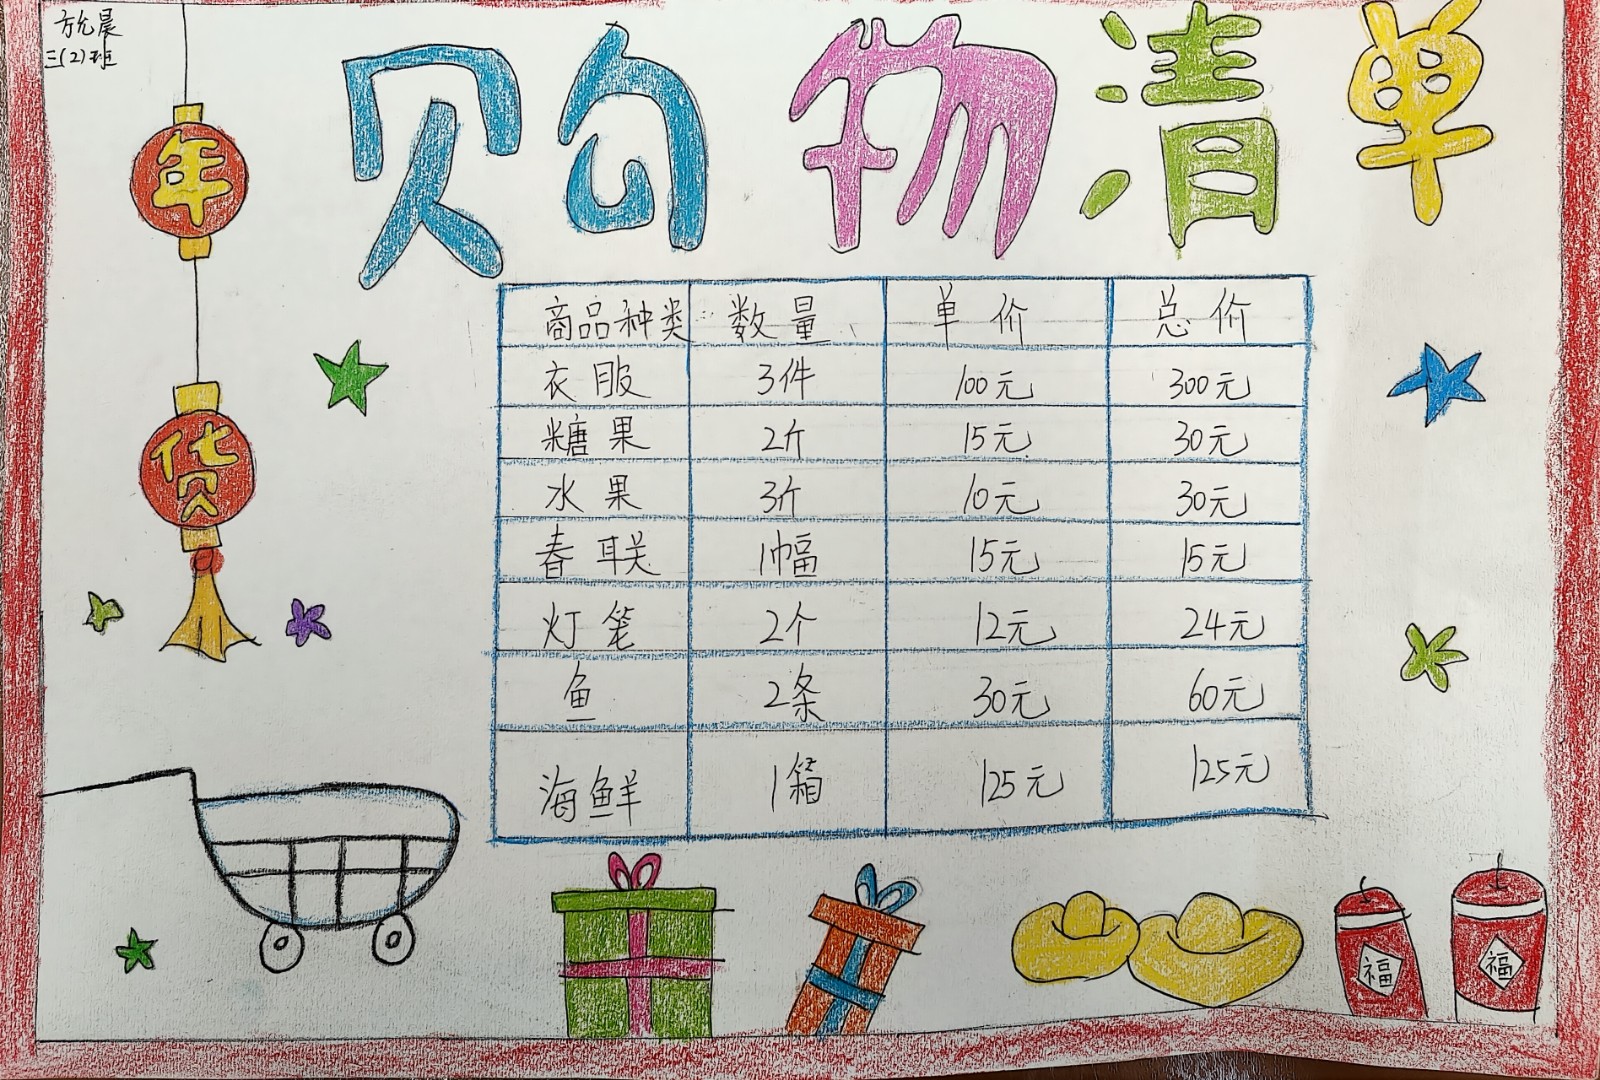 方允晨
三(2)班
购物清单
年
货
商品种类 数量 单价 总价
衣服 3件 100元 300元
糖果 2斤 15元 30元
水果 3斤 10元 30元
春联 1幅 15元 15元
灯笼 2个 12元 24元
鱼 2条 30元 60元
海鲜 1箱 125元 125元
福 福